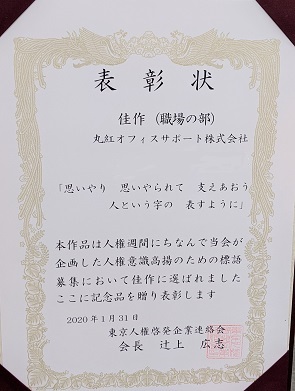 表彰状
佳作（職場の部）
丸紅オフィスサポート株式会社
「思いやり　思いやられて　支えあおう
人という字の　表すように」
本作品は人権週間にちなんで当会が
企画した人権意識高揚のための標語
募集において佳作に選ばれました
ここに記念品を贈り表彰します
2020年1月31日
東京人権啓発企業連絡会
会長　辻上　広志